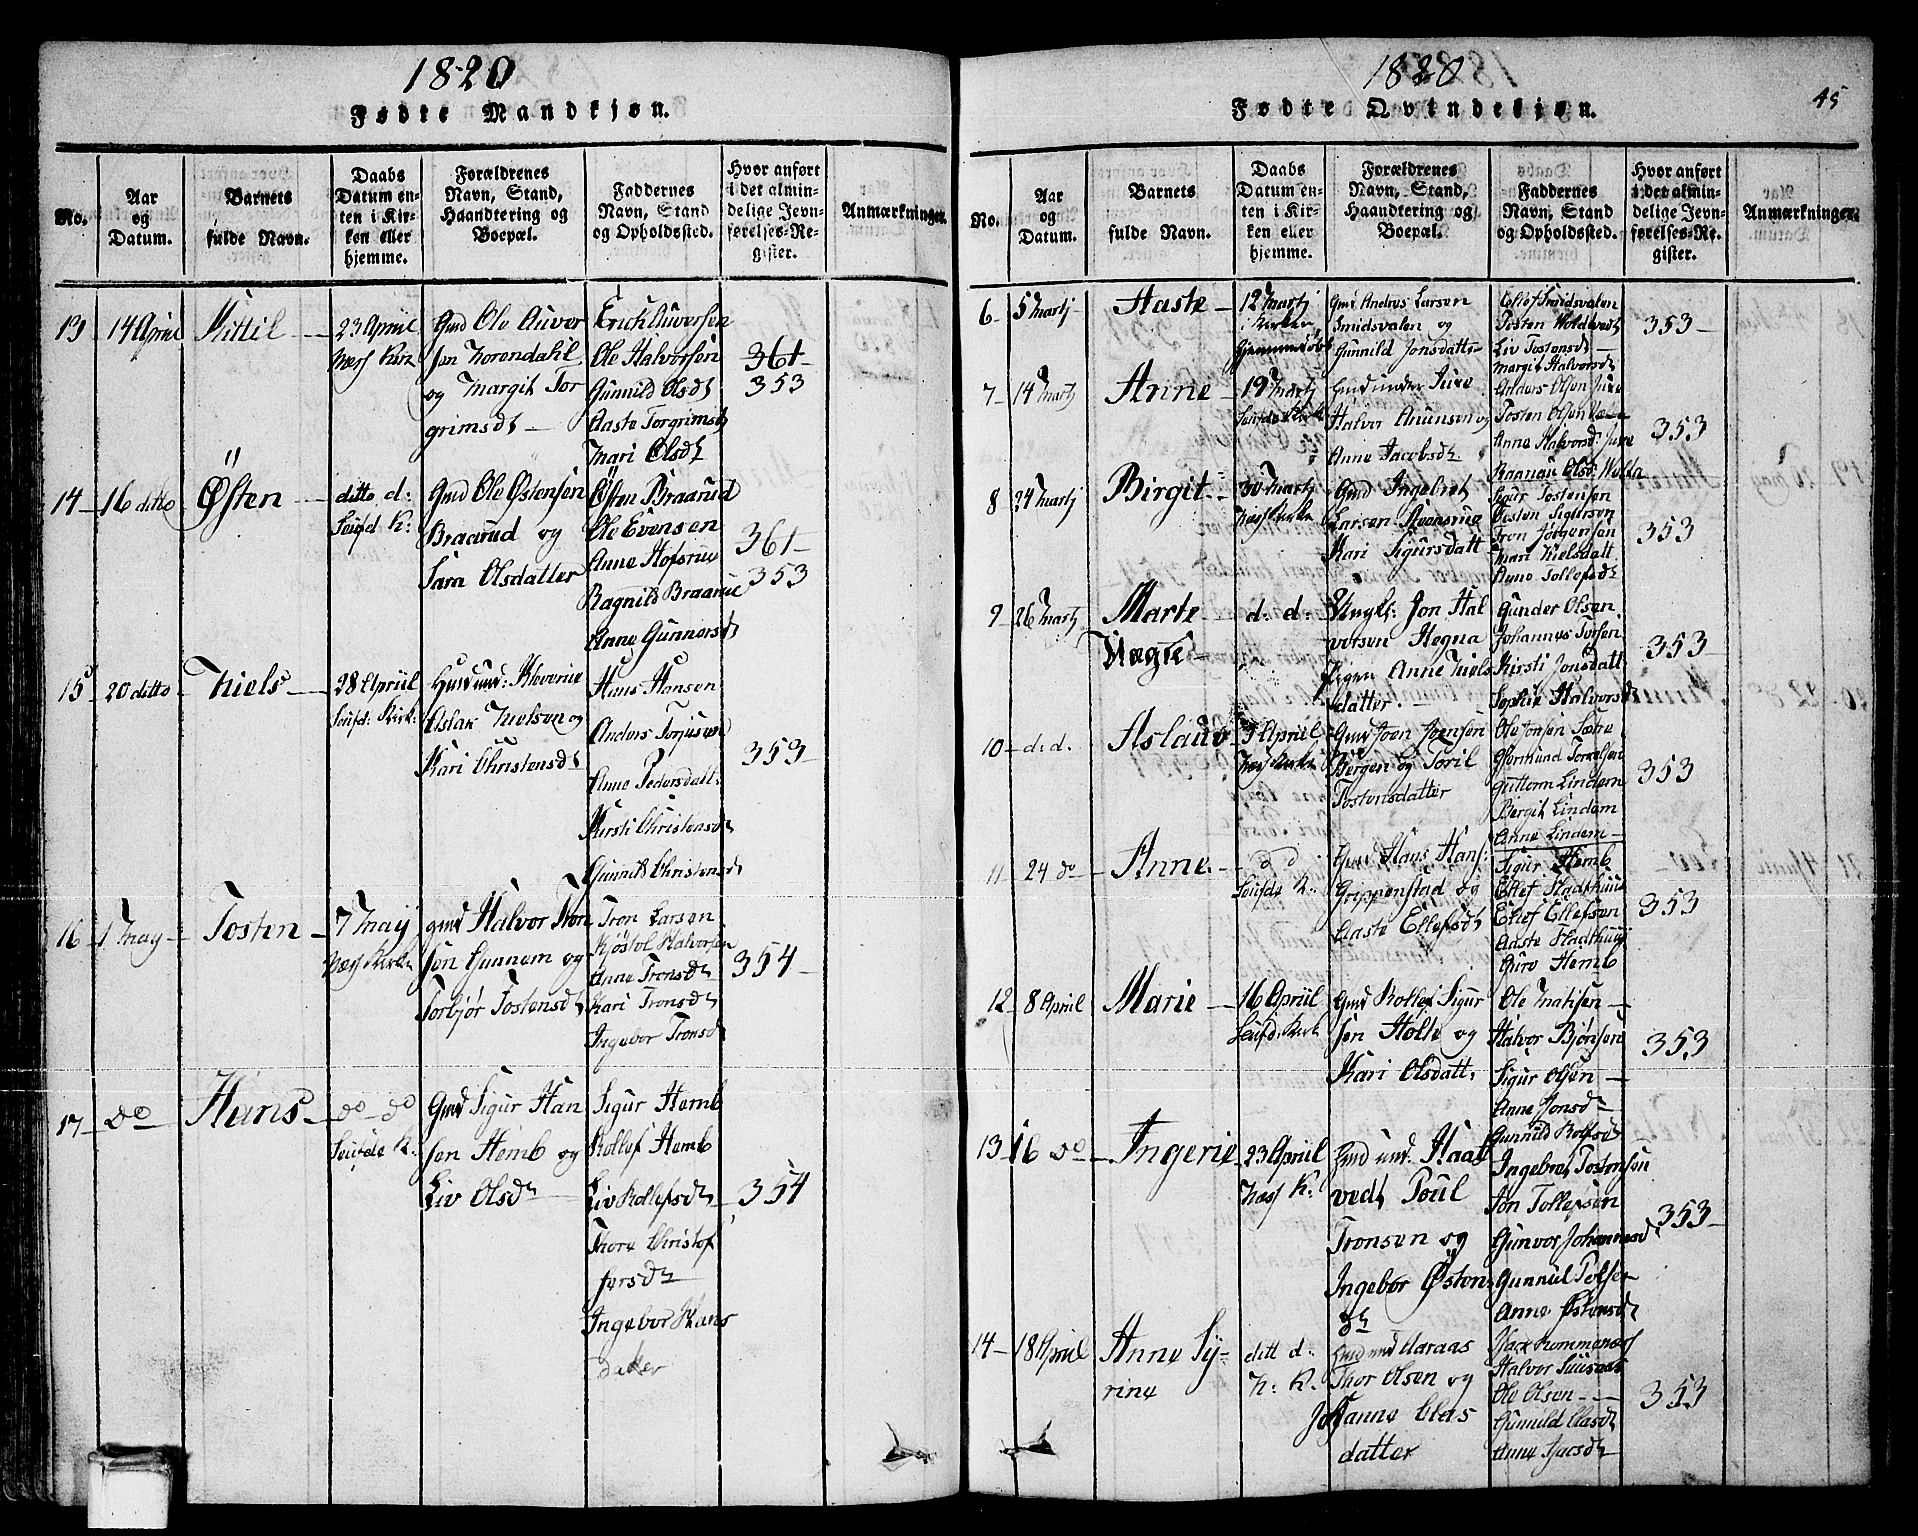 1820
Fødte Mandkjøn.
No.
Aar
og
Datum.
Barnets
fulde Navn.
Daabs
Datum en-
ten i Kir-
ken eller
hjemme.
Forældrenes
Navn, Stand,
Haandtering og
Boepæl.
Faddernes
Navn, Stand
og Opholdssted.
Hvor anført
i det almin-
delige Jevn-
førelses-Re-
gister.
Anmærkninger.
13
14 April
Kittil
23 Apriil
Næss Kirk
Gmd Ole Auver
sen Norendahl
og Margit Tor
grimsdt
Erich Auversen
Ole Halvorsen
Gunnild Olsdt
Aaste Torgrimsdt
Mari Olsdt
361
353
14
16 ditto
Østen
ditto d:
Soufd K:
Gmd Ole Østensen
Braarud og
Sara Olsdatter
Østen Braarud
Ole Evensen
Anne Hofsrue
Ragnild Braarue
Anne Gunnersdt
361
353
15
20 ditto
Niels
28 Apriil
Soufd: Kirk
Husd und: Kloverue
Aslak Nielsen og
Kari Christensdt
Hans Hansen
Anders Torjusen
Anne Pedersdatt:
Kirsti Christensdt
Gunnild Christensdt
353
16
1 May
Tosten
7 May
Næss Kirke
gmd Halvor Tron
sen Gunnem og
Torbjør Tostensdt
Tron Larsen
Kjøstol Halvorsen
Anne Tronsdr
Kari Tronsdr
Ingebor Tronsdr
354
17
do
Hans
do do
Soufde K.
Gmd Sigur Han
sen Hemb og
Liv Olsdr
Sigur Hemb
Rollef Hemb
Liv Rollefsdr
Thore Christof
fersdr
Ingebor Hans
datter
354
1820
45
Fødte Qvindekjøn.
No.
Aar
og
Datum.
Barnets
fulde Navn.
Daabs
Datum en-
ten i Kir-
ken eller
hjemme.
Forældrenes
Navn, Stand,
Haandtering og
Boepæl.
Faddernes
Navn, Stand
og Opholdssted.
Hvor anført
i det almin-
delige Jevn-
førelses-Re-
gister.
Anmærkninger.
6
5 Martj
Aaste
12 Martj
i Kirken
hjemmedøbt
Gmd Andres Larsen
Smidsvalen og
Gunnild Jonsdattr
Ellef Smidsvalen
Tosten Woldevedt
Liv Tostensdt
Margit Halvorsdt
353
7
14 Martj
Anne
19 Martj
Soufde Kirke
Gmd under Juve
Halvor Anunsen og
Anne Jacobsdt
Anders Olsen Juve
Tosten Olsen
Anne Halvorsd: Juve
353
8
24 Martj
Birgit
30 Martj
Næss Kirke
Gmd Ingebret
Larsen
Kari Sigursdatt
Raanau Olsd: Wolda
Sigur Tostensen
Tosten Sigursen
Tron Jørgensen
Mari Nielsdatt
Anne Tollefsdt
353
9
26 Martj
Marte
Nægte
d: d:
Ungk: Jon Hal
vorsen Hegna
Pigen Anne Niels
datter
Gunder Olsen
Johannes Torsen
Kirsti Jonsdatt
Sophie Halvorsdt
353
10
d: d.
Aslaug
3 Apriil
Næss Kirke
Gmd Joen Joensen
Bergen og Toril
Tostensdatter
Ole Jonsen Sære
Gjermund Torkelsen
Guttorm Lindem
Bergit Lindem
Anne Lindem
353
11
24 do
Anne
d d
Soufde K.
Gmd Hans Hans:
Grippenstad og
Aaste Ellefsdt
Sigur Hemb
Ellef Stadthuus
Ellef Ellefsen
Aaste Stadthuus
Guro Hemb
353
12
8 Apriil
Marie
16 Apriil
Soufd: Kirk
Gmd Rollef Sigur
sen Holte og
Kari Olsdatt:
Ole Matisen
Halvor Bjønsen
Sigur Olsen
Anne Jonsdr
Gunnild Rolfsdt
353
13
16 do
Ingerie
23 Apriil
Næss K:
Gmd und: Haat
vedt Poul
Tronsen og
Ingebor Østens
dr
Ingebret Tostensen
Jon Tollefsen
Gunvor Johannesd
Gunnul Tolfse
Anne Østensdt
353
14
18 Apriil
Anne Sy-
rine
ditt d:
N: K:
Gmd und Aaraas
Thor Olsen og
Johanne Clas
datter
Halvor
Ole Olsen
Gunnild Clasdt
Anne
353